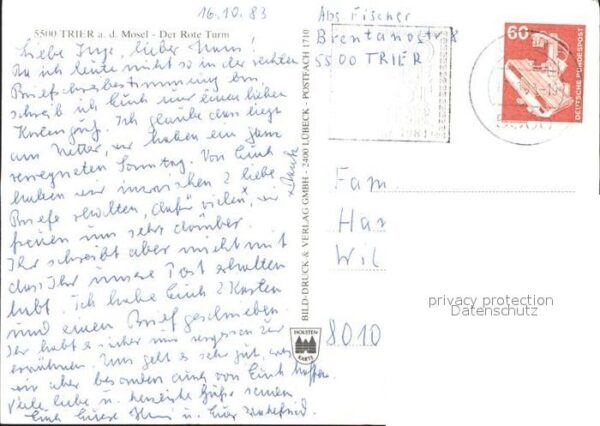 16.10.83
5500 TRIER a. d. Mosel - Der Rote Turm
Liebe Inge, lieber Hans!
Da ich heute nicht so in der rechten
Briefschreibestimmung bin,
schreib ich Euch nur einen lieben
Kartengruß. Ich glaube das liegt
am Wetter, wir haben ein ganz
verregneten Sonntag. Von Euch
haben wir inzwischen 2 liebe
Briefe erhalten, dafür vielen x, wir
x Dank
freuen uns sehr darüber.
Ihr schreibt aber nicht mit
dass Ihr unsere Post erhalten
habt. Ich habe Euch 2 Karten
und einen Brief geschrieben.
Ihr habt es sicher nur vergessen zu
erwähnen. Uns geht es sehr gut, was
wir aber besonders auch von Euch hoffen.
Viele liebe u. herzliche Grüße senden
Euch Eure
BILD-DRUCK & VERLAG GMBH - 2400 LÜBECK - POSTFACH 1710
HOLSTEN
KARTE
Abs Fischer
Brentanostr 8
5500 TRIER
60
DEUTSCHE BUNDESPOST
Fam
Han
Wil
8010
privacy protection
Datenschutz